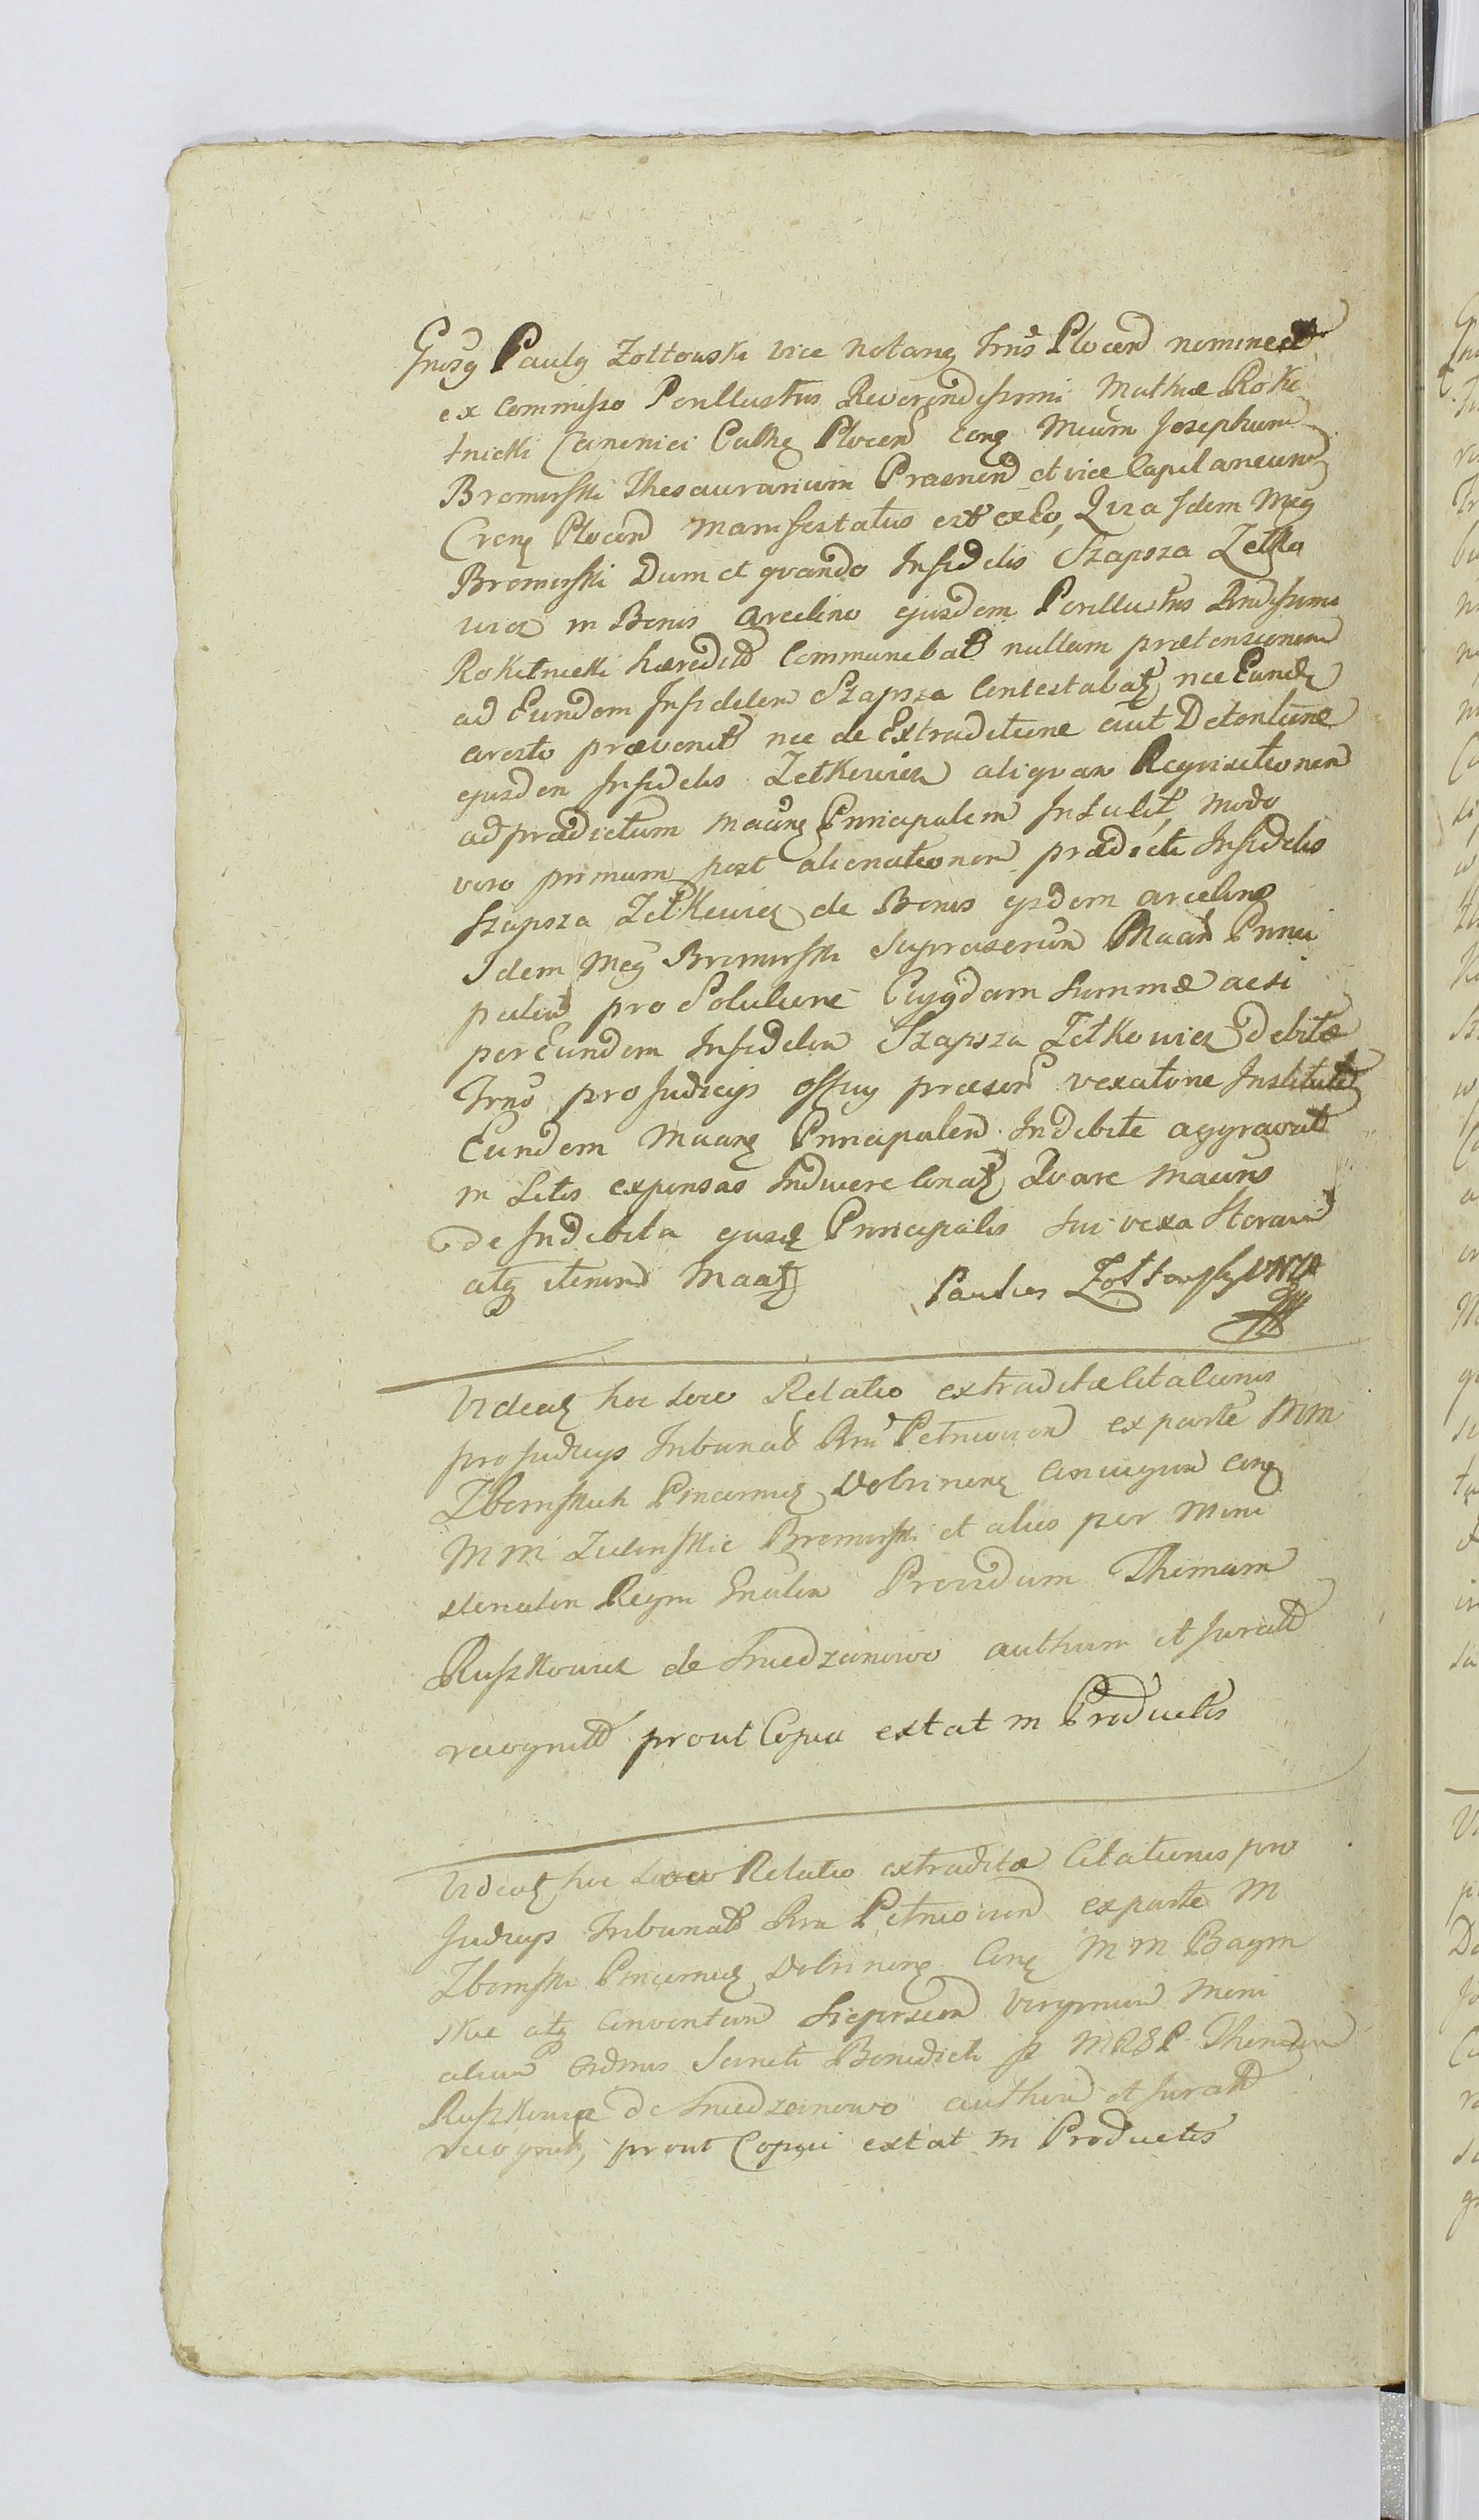 Gnosg Paulg Zołtowski vice Notarig Trns Plocen nomine et
ex commisso Perillustris Reverendissimi Mathiæ Roki
tnicki Canonici Cathg Plocen cong Mcum Josephum
Bromirski Thesaurarium Prasnen et vice Capitaneum
Creng Plocen manifestatus est ex Eo, Qiza Idem Mcg
Bromirski Dum et qvando Infidelis Szapsza Zelko
wicz in Bonis Arcelino ejusdem Perillustris Rndissimi
Rokitnicki hæredit Commanebat nullam prætensionem
ad Eundem Infidelem Szapsza Contestabatg nec Eundg
aresto prævenit nec de Extraditione aut Detentione
ejusdem Infidelis Zelkowicz aliqvam Reqvisitionem
ad prædictum Maang Principalem Instulit, modo
vero primum post alienationem prædicti Infidelis
Szapsza Zelkowicz de Bonis ejsdem Arcelino
Idem Mcg Bromirski Suprascrim Maan Princi
palem pro Solutione Cujgdam Summæ acsi
per Eundem Infidelem Szapsza Zelkowicz debitæ
Trns pro Judicijs Offijg præsen vexatione Instituta
Eundem Maang Principalem Indebite aggravat
in Litis expensas Inducere Conatg Qvare Maans
de Indebita ejusd Principalis sui vexa Iteram
atg iterum Maatg Paulus Zołtowski VNZP
Videatg hoc Loco Relatio extraditæ Citationis
pro Judicijs Tribunal Rni Petricovien ex parte MM
Zboinskich Pincernig Dobrineng Coniugum Cong
MM Zielinskie Bromirski et alios per Mini
sterialem Regni Gnalem Providum Thomam
Ruszkowicz de Sniedzanowo authum et Jurat
recognit prout Copia extat in Productis
Videatg hoc Loco Relatio extraditæ Citationis pro
Judicijs Tribunal Rni Petricovien ex parte M
Zboinski Pincernig Dobrineng Cong MM Bagin
skie atg Conventum Sieprscen Virginum Moni
alium Ordinis Sancti Benedicti p MRGP Thomam
Ruszkowicz de Sniedzanowo authum et Jurat
recognit, prout Copia extat in Productis